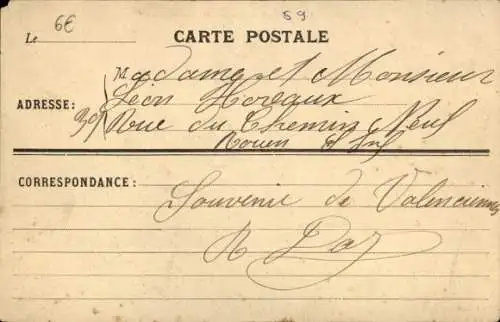 6€ 59
Le
CARTE POSTALE
Madame et Monsieur
ADRESSE: Léon Horeaux
39 Rue du Chemin Neuf
Rouen S. Inf
CORRESPONDANCE:
Souvenir de Valenciennes